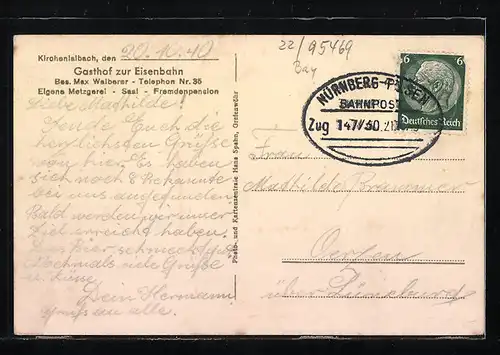 Kirchenlaibach, den 20.10.40
Gasthof zur Eisenbahn
Bes. Max Walberer - Telephon Nr. 35
Eigene Metzgerei - Saal - Fremdenpension
Liebe Mathilde!
Sende Euch die
herzlichsten Grüße
von hier. Es haben
sich noch 8 Bekannte
bei uns eingefunden
Bald werden wir unser
Ziel erreicht haben.
Das Bier schmeckt gut.
Nochmals viele Grüße
u. Küsse
Dein Hermann
Gruß an alle.
Photo- und Kartenzentrale Hans Spahn, Grafenwöhr
22/95469
Bay
NÜRNBERG-
BAHNPOST
Zug 147
6 6
Deutsches Reich
Frau
Mathilde
über Lüneburg